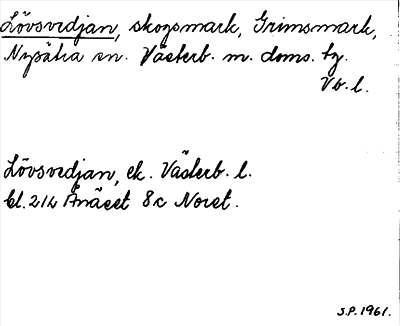 Lövsvedjan, skogsmark, Grimsmark,
Nysätra sn. Västerb. m. doms. tg.
Vb. l.
Lövsvedjan, ek. Västerb. l.
bl. 212 Ånäset 8c Noret.
S.P. 1961.